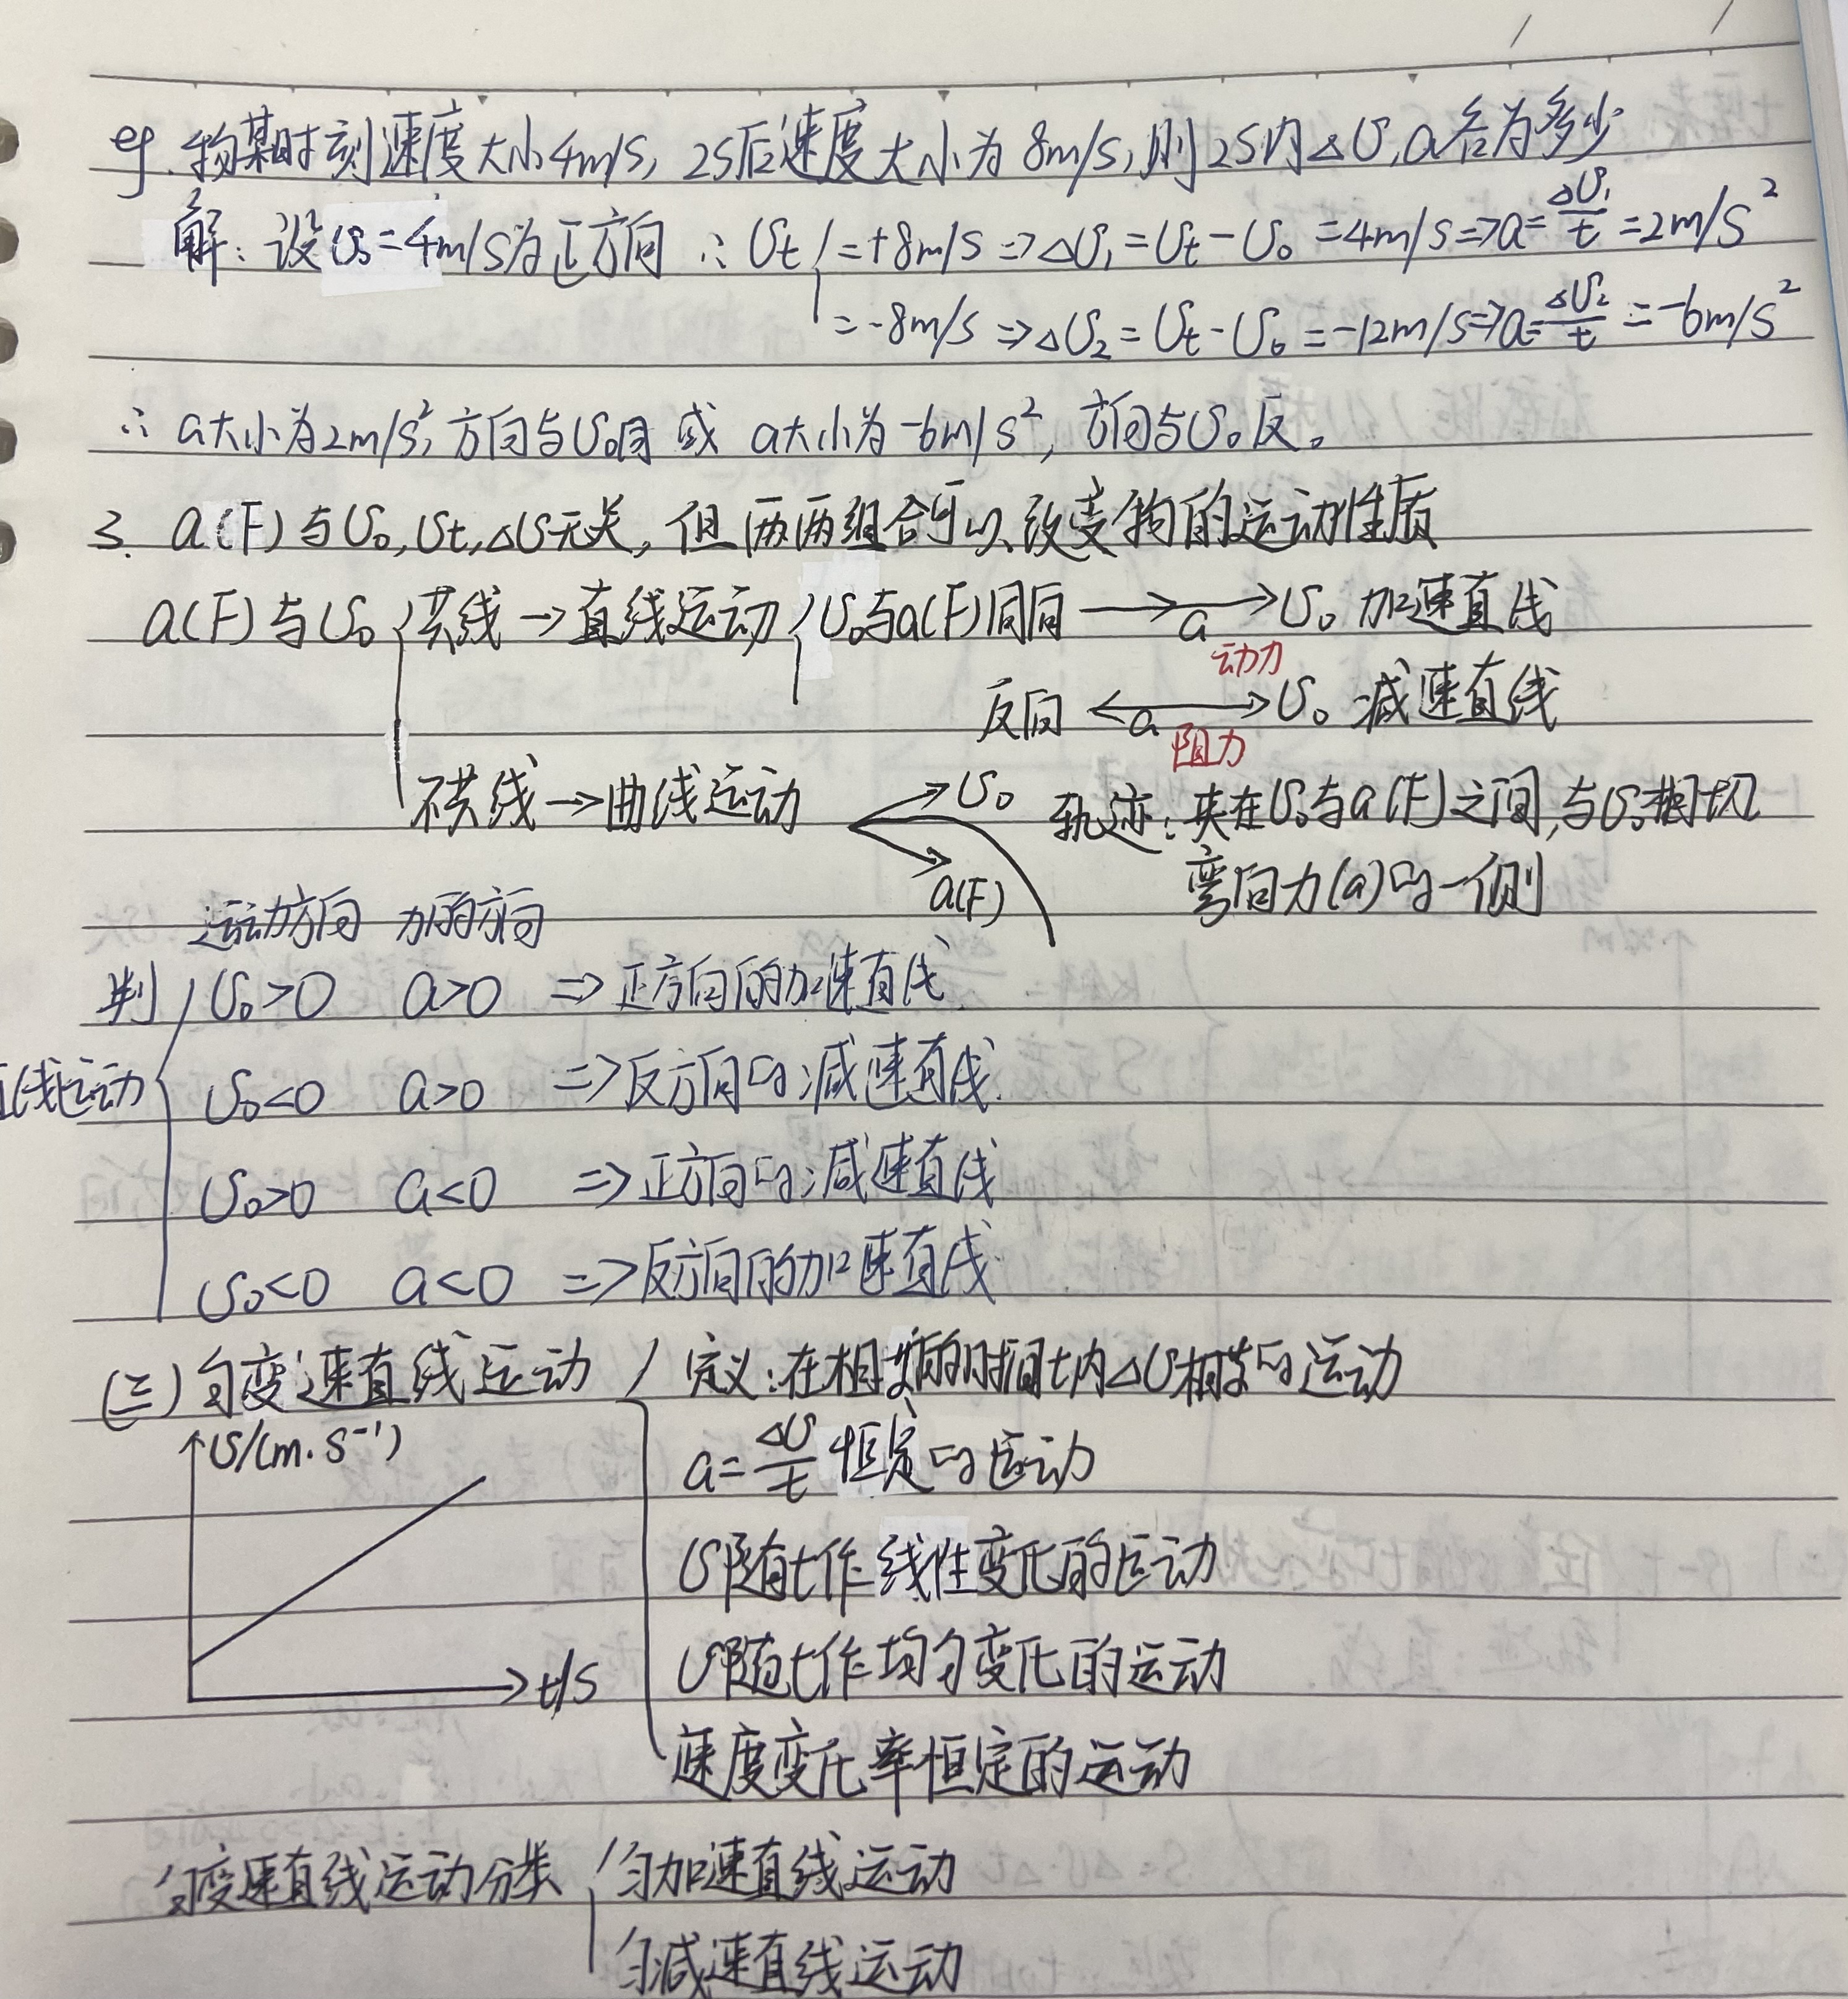 eg. 物某时刻速度大小4m/s, 2s后速度大小为8m/s, 则2s内△υ, a各为多少
解: 设υ₀=4m/s为正方向 ∴ υt =+8m/s ⇒ △υ₁=υt-υ₀ =4m/s ⇒ a=△υ₁/t =2m/s²
=-8m/s ⇒ △υ₂=υt-υ₀ =-12m/s ⇒ a=△υ₂/t =-6m/s²
∴ a大小为2m/s², 方向与υ₀同 或 a大小为-6m/s², 方向与υ₀反。
3. a(F)与υ₀, υt, △υ无关, 但两两组合可以改变物的运动性质
a(F)与υ₀ 共线→直线运动 υ₀与a(F)同向 a υ₀ 加速直线
动力
反向 a υ₀ 减速直线
阻力
不共线→曲线运动 υ₀ 轨迹: 夹在υ₀与a(F)之间, 与υ₀相切
a(F) 弯向力(a)的一侧
运动方向 力的方向
判 υ₀>0 a>0 ⇒ 正方向的加速直线
直线运动 υ₀<0 a>0 ⇒ 反方向的减速直线
υ₀>0 a<0 ⇒ 正方向的减速直线
υ₀<0 a<0 ⇒ 反方向的加速直线
(三) 匀变速直线运动 定义: 在相等的时间t内△υ相等的运动
υ/(m·s⁻¹)
a=△υ/t 恒定的运动
υ随t作线性变化的运动
υ随t作均匀变化的运动
t/s
速度变化率恒定的运动
匀变速直线运动分类 匀加速直线运动
匀减速直线运动